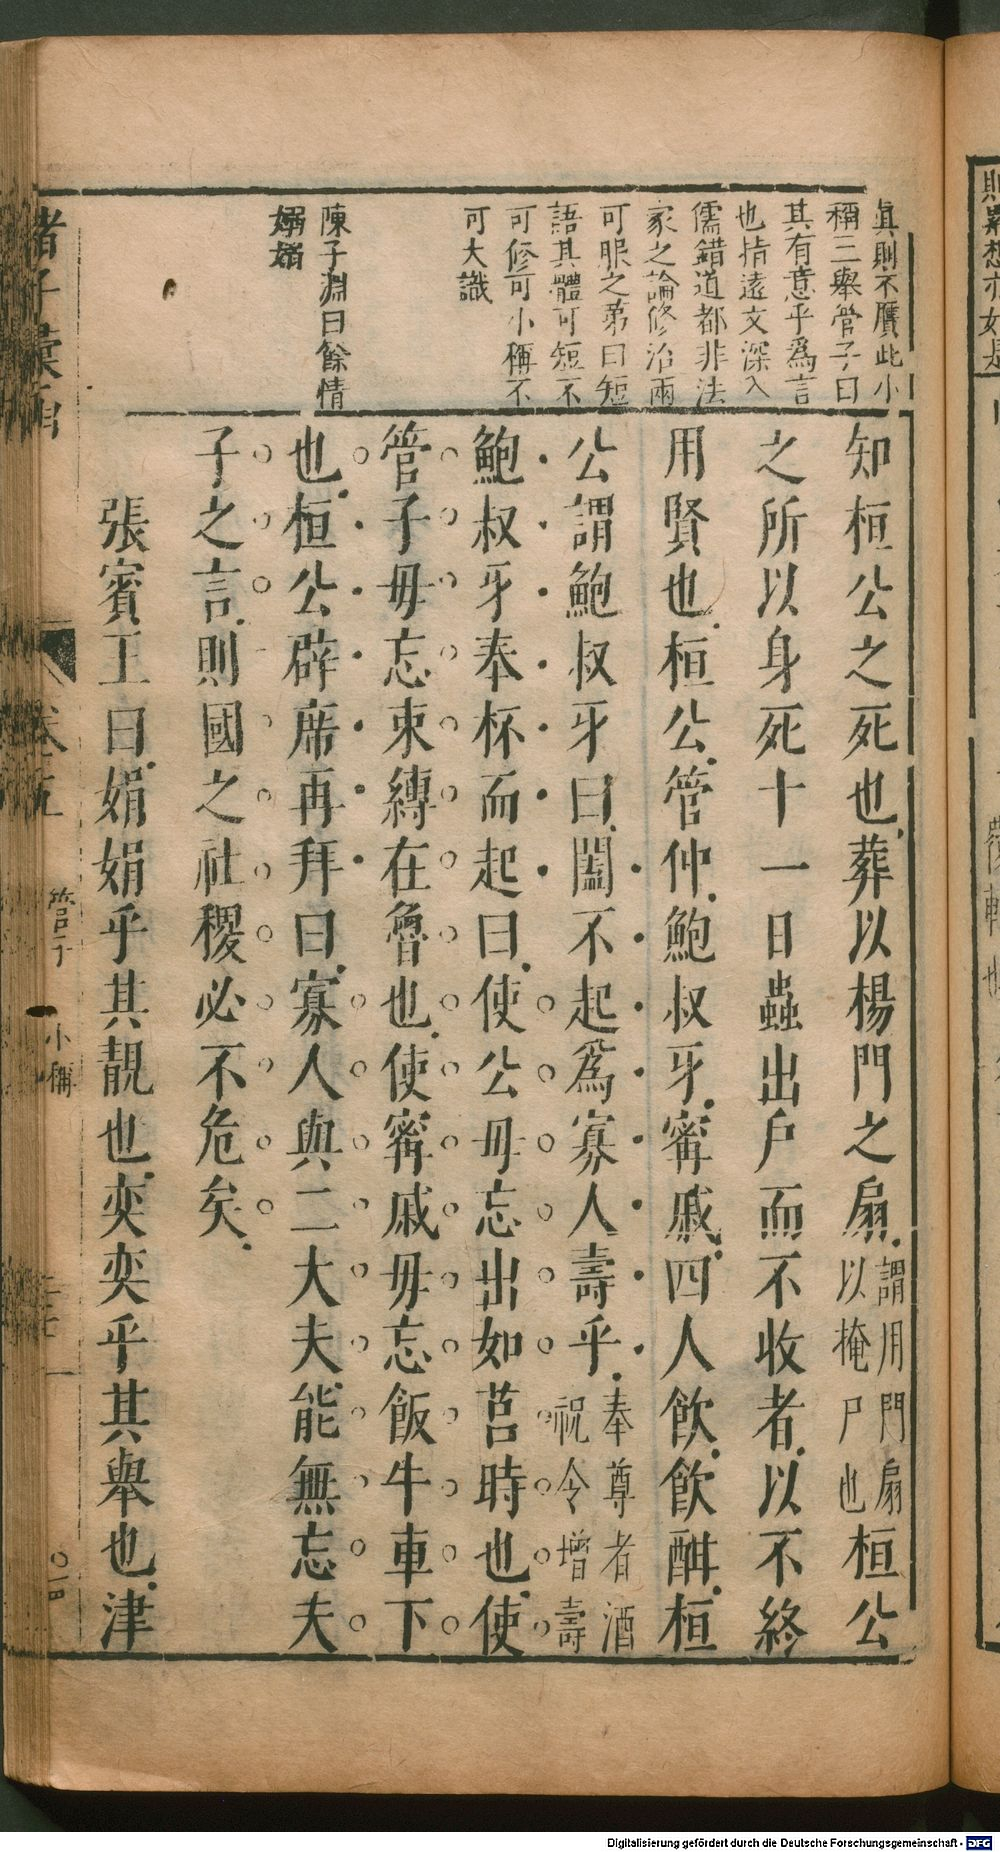 眞則不贋此小
稱三舉管子曰
其有意乎爲言
也情遠文深入
儒錯道都非法
家之論修治兩
可眼之弟曰短
語其體可短不
可修可小稱不
可大識
陳子淵曰餘情
嫋嫋
知桓公之死也葬以楊門之扇謂用門扇以掩尸也桓公
之所以身死十一日蟲出户而不收者以不終
用賢也桓公管仲鮑叔牙甯戚四人飲飲酣桓
公謂鮑叔牙曰闔不起爲寡人壽乎奉尊者酒祝令增壽
鮑叔牙奉杯而起曰使公毋忘出如莒時也使
管子毋忘束縛在魯也使甯戚毋忘飯牛車下
也桓公辟席再拜曰寡人與二大夫能無忘夫
子之言則國之社稷必不危矣
張賓王曰娟娟乎其靚也奕奕乎其舉也津
諸子彙函
卷五
管子
小稱
Digitalisierung gefördert durch die Deutsche Forschungsgemeinschaft - DFG